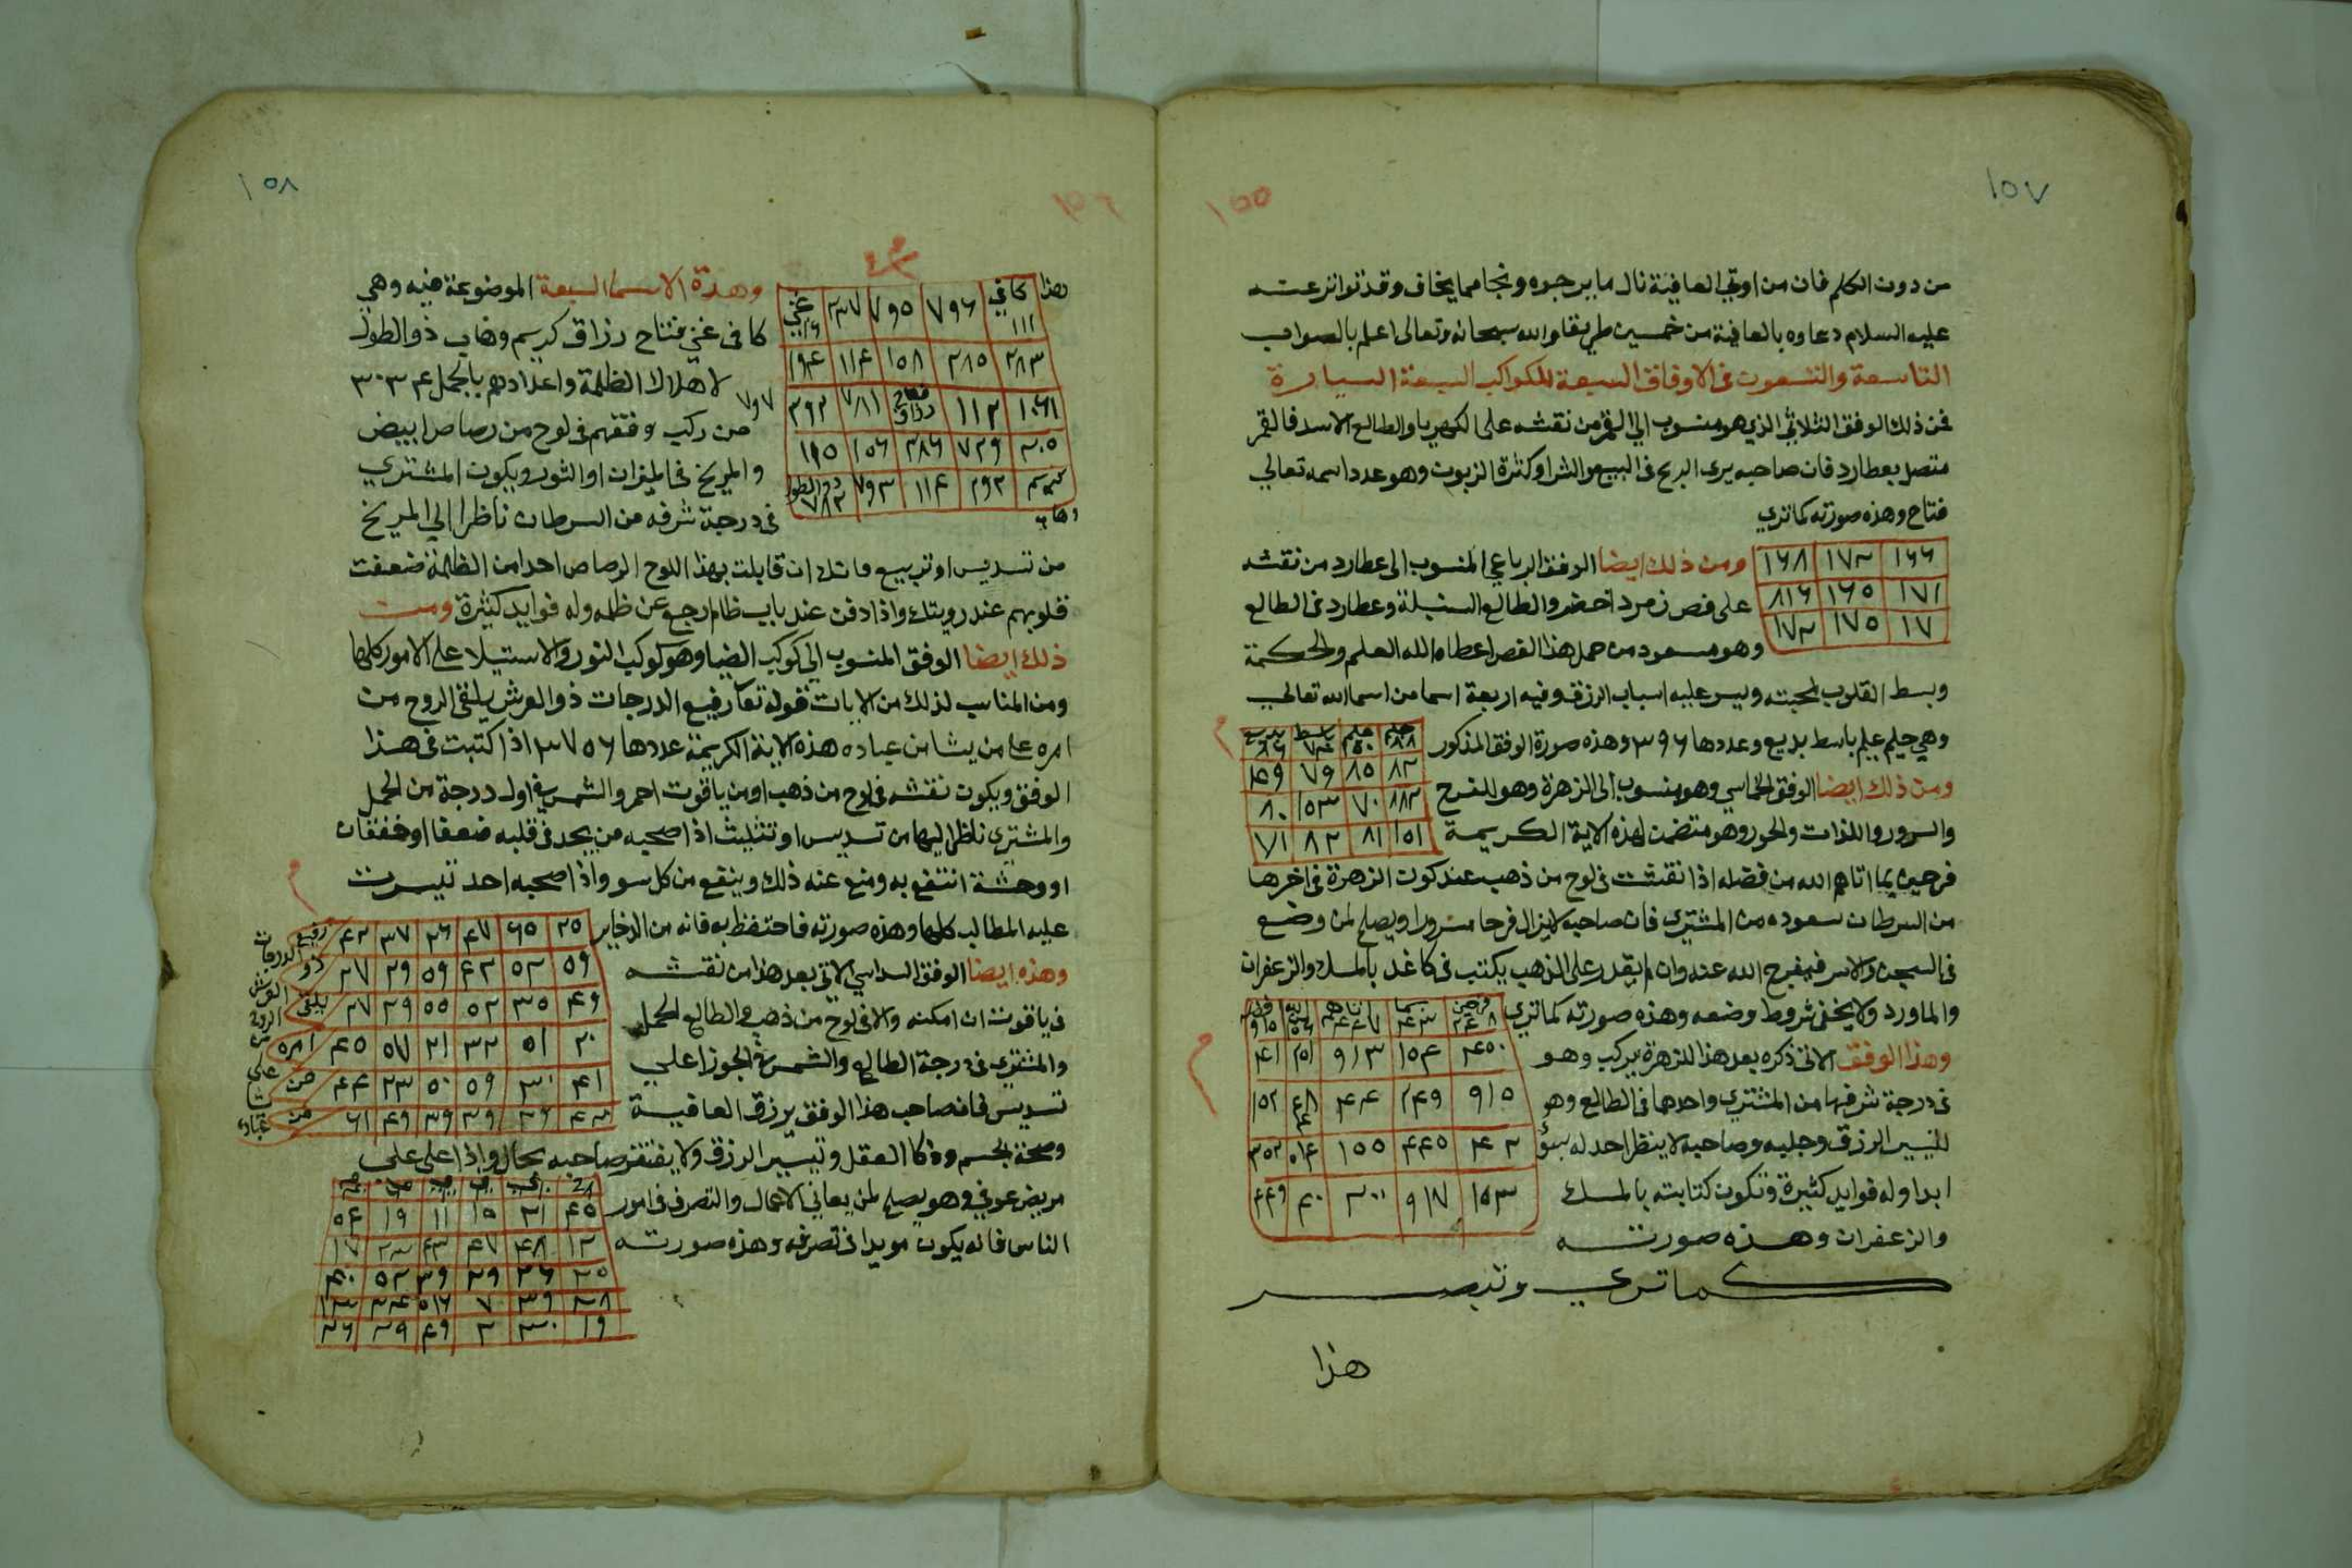 ١٥٧
١٥٥
من دون الكلم فان من اوتي العافية نال ما يرجوه ونجا مما يخاف وقد تواتر عنه
عليه السلام دعاوه بالعافية من خمسين طريقا والله سبحانه وتعالى اعلم بالصواب
التاسعة والتسعون في الاوفاق السبعة للكواكب السبعة السيارة
فمن ذلك الوفق الثلاثي الذي هو منسوب الي القمر من نقشه على الكهربا والطالع الاسد فالقمر
متصل بعطارد فان صاحبه يرى الربح في البيع والشرا وكثرة الزبون وهو عدد اسمه تعالي
فتاح وهذه صورته كما تري
١٦٦ ١٧٣ ١٦٨
١٧١ ١٦٥ ٨١٦
١٧ ١٧٥ ١٧٣
ومن ذلك ايضا الوفق الرباعي المنسوب الى عطارد من نقشه
على فص زمرد اخضر والطالع السنبلة وعطارد في الطالع
وهو مسعود من حمل هذا الفص اعطاه الله العلم والحكمة
وبسط القلوب لمحبته ويسر عليه اسباب الرزق وفيه اربعة اسما من اسما الله تعالي
وهي حليم عليم باسط بديع وعددها ٣٩٦ وهذه صورة الوفق المذكور
٨٢ ٨٥ ٧٩ ١٤٩
١٨٣ ٧٠ ١٥٣ ٨٠
١٥١ ٨١ ٨٢ ٧١
ومن ذلك ايضا الوفق الخماسي وهو منسوب الى الزهرة وهو للفرح
والسرور واللذات والحور وهو متضمن لهذه الاية الكريمة
فرحين بما اتاهم الله من فضله اذا نقشت في لوح من ذهب عند كون الزهرة في اخرها
من السرطان سعوده من المشتري فان صاحبه لا يزال فرحا مسرورا ويصلح لمن وضع
في السجن والاسر فيفرج الله عنه وان لم يقدر على الذهب يكتب في كاغد بالمسك والزعفران
والماورد ولا يخفى شروط وضعه وهذه صورته كما تري
٤٥٠ ١٥٤ ٩١٣ ٢٥١ ٤١
٩١٥ ٢٤٩ ٤٤ ٤٨ ١٥٢
٤٢ ٤٤٥ ١٥٥ ٩١٤ ٣٥٢
١٥٣ ٩١٧ ٣٠٠ ٤٠ ٤٤٩
وهذا الوفق الاتي ذكره بعد هذا للزهرة يركب وهو
في درجة شرفها من المشتري واحدها في الطالع وهو
لتيسير الرزق وجلبه وصاحبه لا ينظر احد له بسؤ
ابدا وله فوايد كثيرة وتكون كتابته بالمسك
والزعفران وهذه صورته
كما تري وتبصر
هذا
١٥٨
١٥٦
هذا
كافي ١١١ ٧٩٦ ٧٩٥ ٣٣٧ غني
٢٨٣ ٢٨٥ ١٥٨ ١١٤ ١٩٤
١٠٦١ ١١٢ رزاق ٧٨١ ٣٩٢
٣٠٥ ٧٢٩ ٢٨٦ ١٥٦ ١٩٥
كريم ٢٩٢ ١١٤ ٧٩٣ ذو الطول ٧٨٢
وهاب
وهذة الاسما السبعة الموضوعة فيه وهي
كافي غني فتاح رزاق كريم وهاب ذو الطول
لاهلاك الظلمة واعدادهم بالجمل ٣٠٣٤
من ركب وفقهم في لوح من رصاص ابيض
والمريخ في الميزان او الثور ويكون المشتري
في درجة شرفه من السرطان ناظرا الي المريخ
من تسديس او تربيع فانك ان قابلت بهذا اللوح الرصاص احدا من الظلمة ضعفت
قلوبهم عند رويتك واذا دفن عند باب ظالم رجع عن ظلمه وله فوايد كثيرة ومن
ذلك ايضا الوفق المنسوب الي كوكب الضيا وهو كوكب النور والاستيلا على الامور كلها
ومن المناسب لذلك من الايات قوله تعا رفيع الدرجات ذو العرش يلقى الروح من
امره على من يشا من عباده هذه الاية الكريمة عددها ٣٧٥٦ اذا كتبت في هذا
الوفق ويكون نقشه في لوح من ذهب او من ياقوت احمر والشمس في اول درجة من الحمل
والمشتري ناظرا اليها من تسديس او تثليث اذا صحبه من يجد في قلبه ضعفا او خفقان
او وحشة انتفع به ومنع عنه ذلك وينفع من كل سو واذا صحبه احد تيسرت
عليه المطالب كلها وهذه صورته فاحتفظ به فانه من الذخاير
وهذه ايضا الوفق السداسي الاتي بعد هذا من نقشه
في ياقوت ان امكنه والا في لوح من ذهب والطالع الحمل
والمشتري في درجة الطالع والشمس في الجوزا علي
تسديس فان صاحب هذا الوفق يرزق العافية
وصحة الجسم وذكا العقل وتيسير الرزق ولا يفتقر صاحبه بحال واذا علق علي
مريض عوفي وهو يصلح لمن يعاني الاعمال والتصرف في امور
الناس فانه يكون مويدا في تصرفه وهذه صورته
٢٥ ٦٥ ٤٧ ٢٦ ٣٧ ٤٢ رفيع الدرجات
٥٩ ٥٢ ٤٢ ٥٩ ٢٩ ٢٧ ذو العرش
٤٩ ٣٥ ٥٢ ٥٥ ٢٩ ٢٧ يلقى الروح
٢٠ ٥١ ٣٢ ٢١ ٥٧ ٤٥ امره من
٤١ ٣٠ ٥٩ ٥٠ ٢٣ ٤٤ من على
٤٣ ٣٦ ٣٩ ٣٩ ٤٩ ٦١ من عباده
٤٥ ٢١ ١٥ ١١ ١٩ ٥٤
١٢ ٤٨ ٤٧ ٤٣ ٢٣ ١٧
٢٥ ٢٦ ٢٩ ٣٩ ٥٢ ٤٠
٢٨ ٣٩ ٧ ٥١٦ ٣٤ ١٣
١٩ ٣٠ ٢ ٤٩ ٢٩ ٢٦